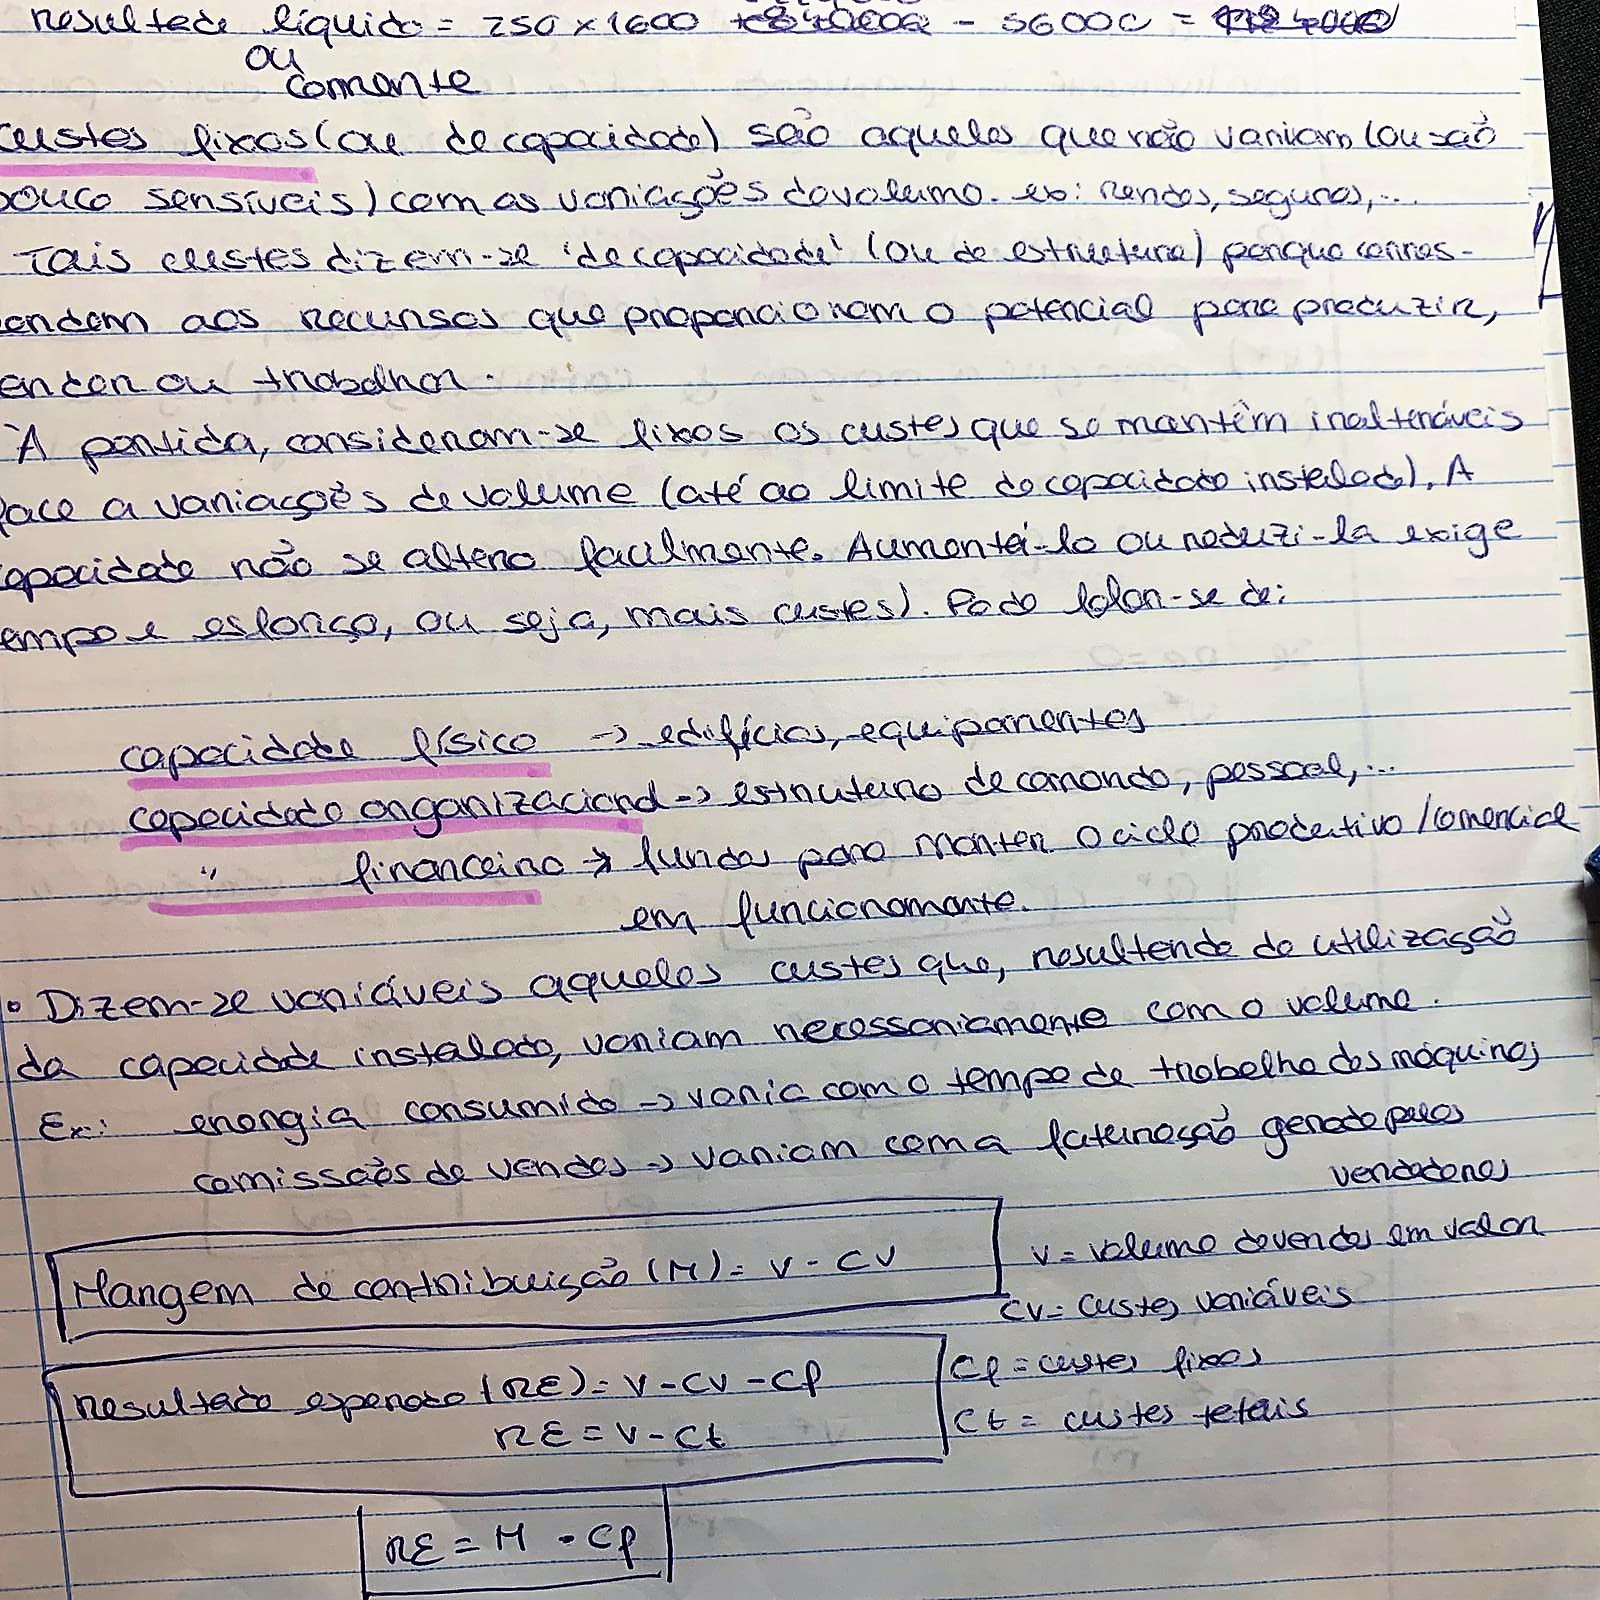 resultado líquido = 250 x 1600 - 56000 =
ou
corrente
custos fixos (ou de capacidade) são aqueles que não variam (ou são
pouco sensíveis) com as variações do volume. ex: rendas, seguros,...
Tais custos dizem-se 'de capacidade' (ou de estrutura) porque corres-
pondem aos recursos que proporcionam o potencial para produzir,
vender ou trabalhar.
À partida, consideram-se fixos os custos que se mantêm inalteráveis
face a variações de volume (até ao limite da capacidade instalada). A
capacidade não se altera facilmente. Aumentá-la ou reduzi-la exige
tempo e esforço, ou seja, mais custos). Pode falar-se de:
capacidade física -> edifícios, equipamentos
capacidade organizacional -> estrutura de comando, pessoal,...
" financeira -> fundos para manter o ciclo produtivo/comercial
em funcionamento.
• Dizem-se variáveis aqueles custos que, resultando da utilização
da capacidade instalada, variam necessariamente com o volume.
Ex: energia consumida -> varia com o tempo de trabalho das máquinas
comissões de vendas -> variam com a faturação gerada pelos
vendedores
Margem de contribuição (M) = V - CV
V = volume de vendas em valor
CV = custos variáveis
Resultado esperado (RE) = V - CV - Cf
RE = V - Ct
Cf = custos fixos
Ct = custos totais
RE = M - Cf